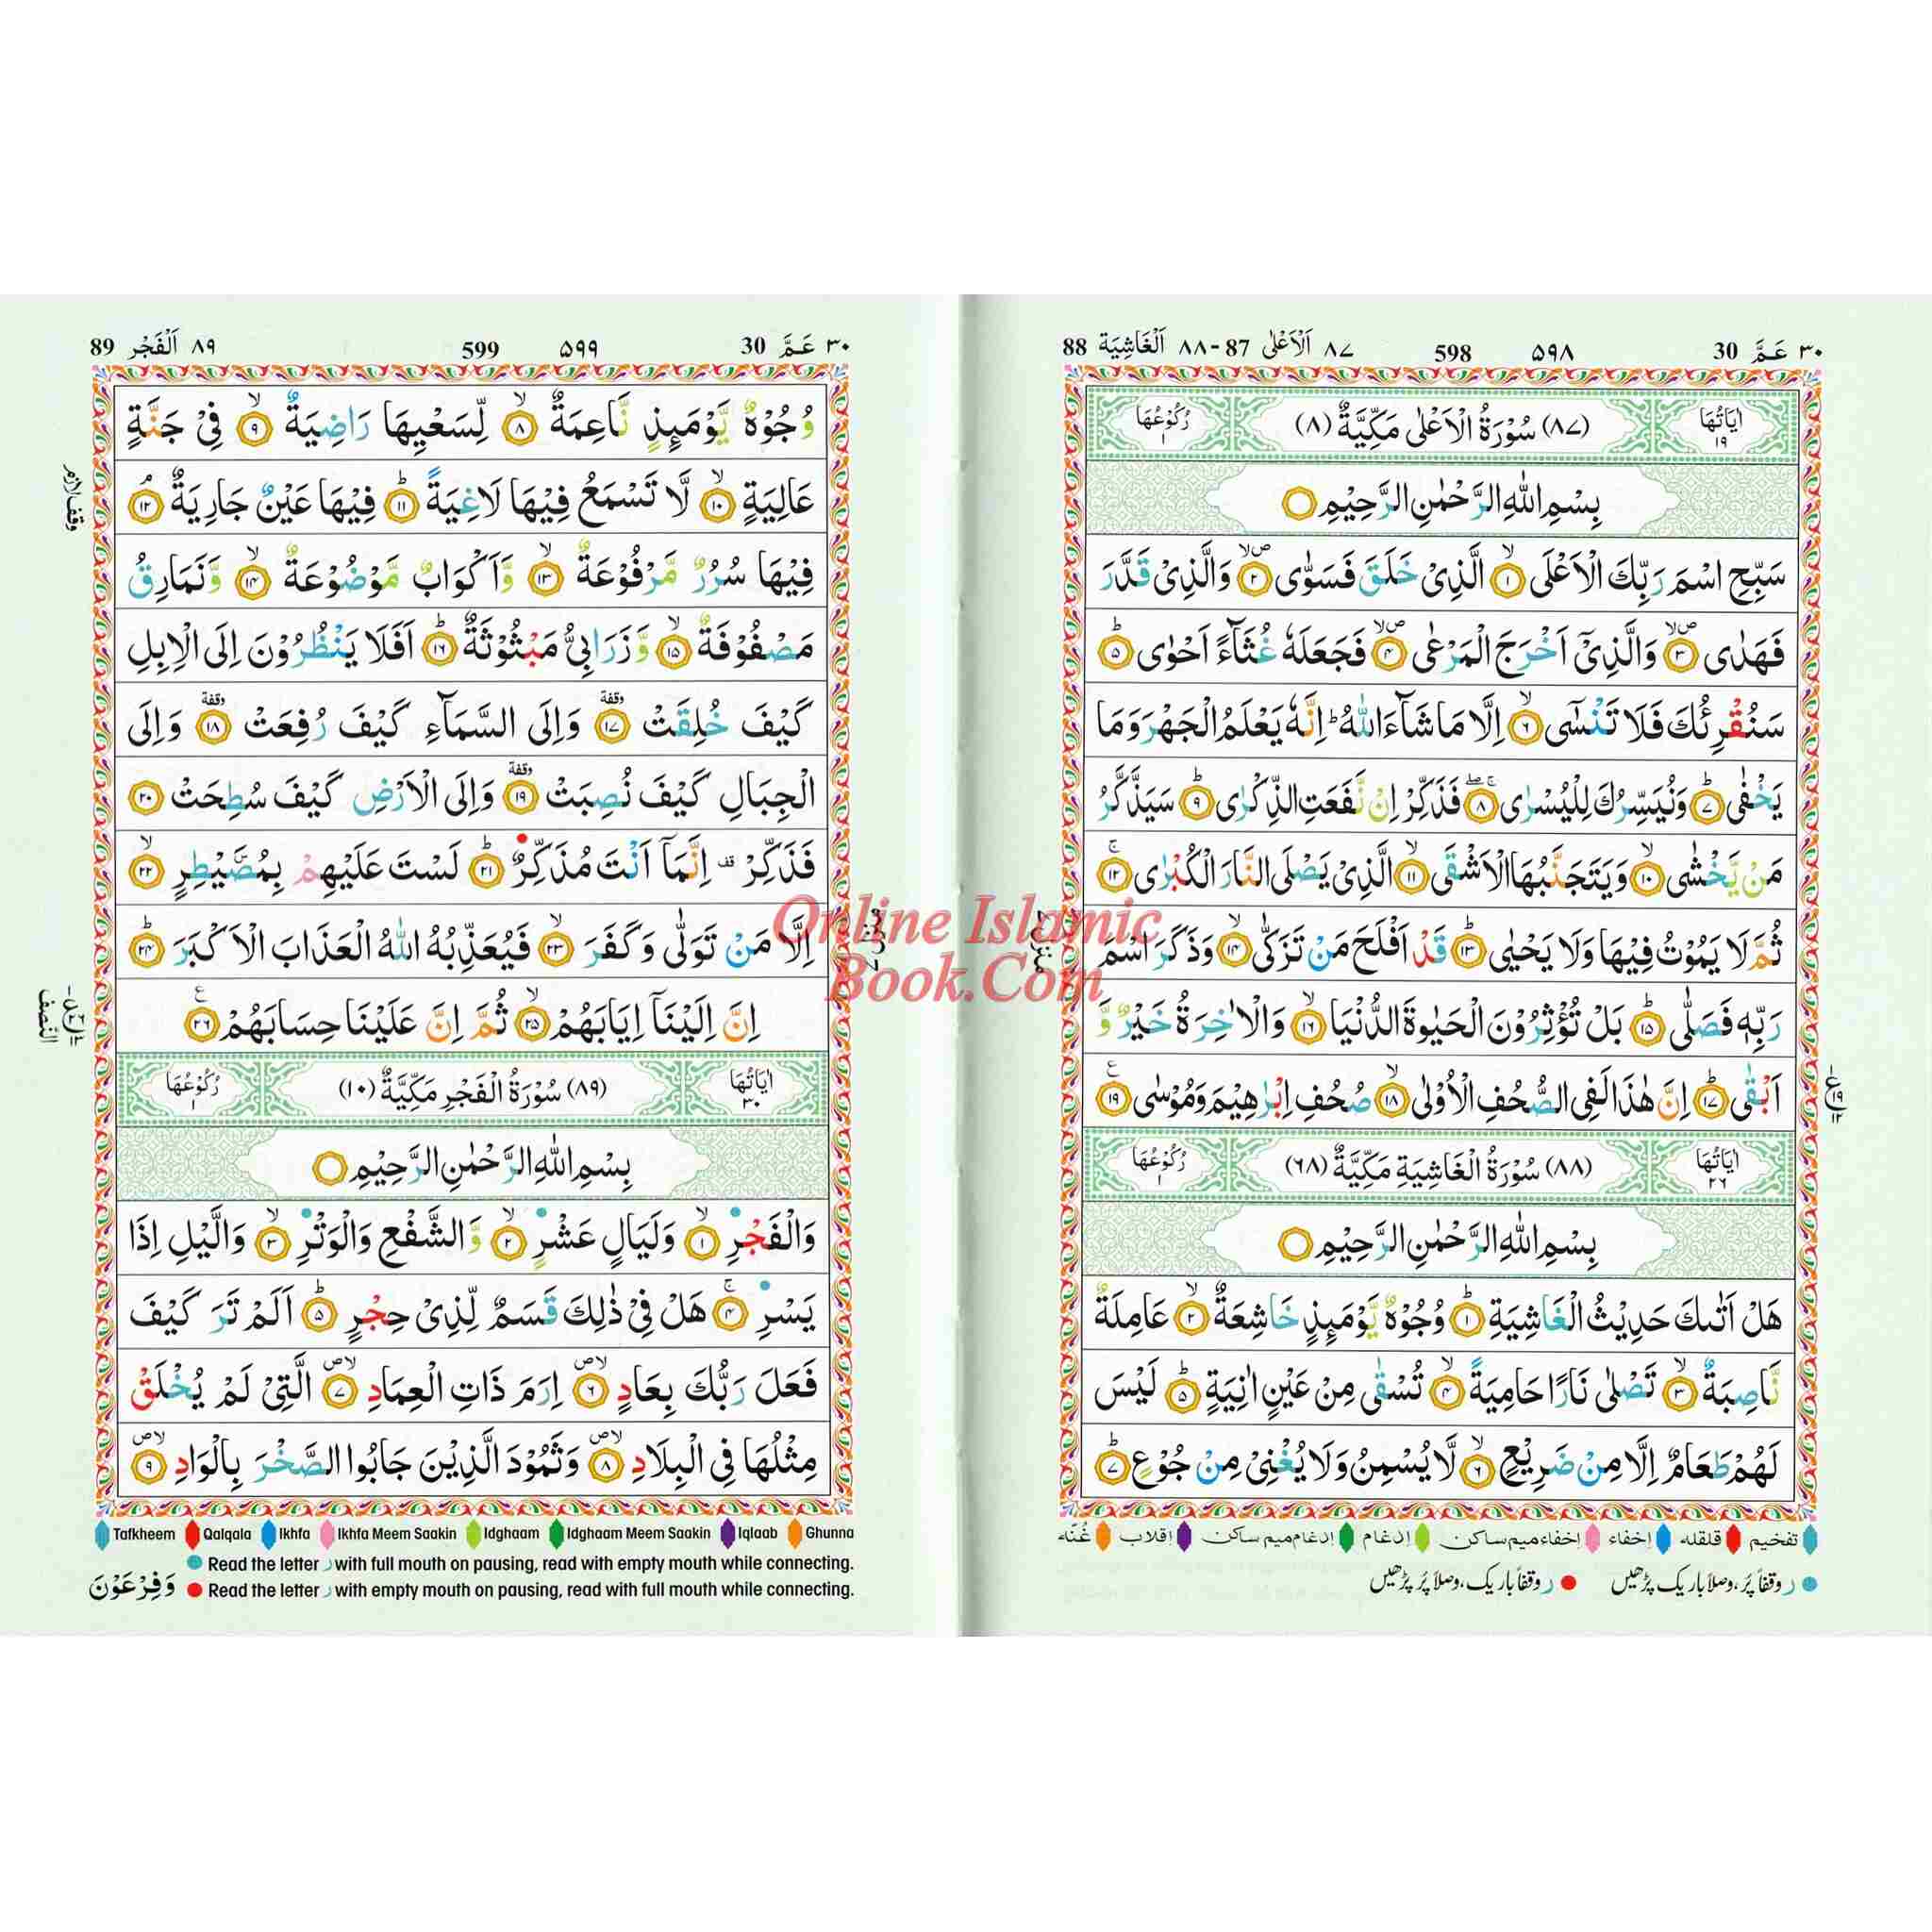 ٣٠ عَمَّ 30 ٥٩٨ 598 ٨٧ اَلْاَعْلٰى 87-٨٨ اَلْغَاشِيَة 88
اٰيَاتُهَا ١٩ (٨٧) سُوْرَةُ الْاَعْلٰى مَكِّيَّةٌ (٨) رُكُوْعُهَا ١
بِسْمِ اللّٰهِ الرَّحْمٰنِ الرَّحِيْمِ
سَبِّحِ اسْمَ رَبِّكَ الْاَعْلَى ۙ١ الَّذِىْ خَلَقَ فَسَوّٰى ۪ۙۙ٢ وَالَّذِىْ قَدَّرَ
فَهَدٰى ۪ۙۙ٣ وَالَّذِىْٓ اَخْرَجَ الْمَرْعٰى ۪ۙۙ٤ فَجَعَلَهٗ غُثَآءً اَحْوٰى ؕ٥
سَنُقْرِئُكَ فَلَا تَنْسٰٓى ۙ٦ اِلَّا مَا شَآءَ اللّٰهُ ؕ اِنَّهٗ يَعْلَمُ الْجَهْرَ وَمَا
يَخْفٰى ؕ٧ وَنُيَسِّرُكَ لِلْيُسْرٰى ۚۖ٨ فَذَكِّرْ اِنْ نَّفَعَتِ الذِّكْرٰى ؕ٩ سَيَذَّكَّرُ
مَنْ يَّخْشٰى ۙ١٠ وَيَتَجَنَّبُهَا الْاَشْقَى ۙ١١ الَّذِىْ يَصْلَى النَّارَ الْكُبْرٰى ۚ١٢
ثُمَّ لَا يَمُوْتُ فِيْهَا وَلَا يَحْيٰى ؕ١٣ قَدْ اَفْلَحَ مَنْ تَزَكّٰى ۙ١٤ وَذَكَرَ اسْمَ
رَبِّهٖ فَصَلّٰى ؕ١٥ بَلْ تُؤْثِرُوْنَ الْحَيٰوةَ الدُّنْيَا ۙ١٦ وَالْاٰخِرَةُ خَيْرٌ وَّ
اَبْقٰى ؕ١٧ اِنَّ هٰذَا لَفِى الصُّحُفِ الْاُوْلٰى ۙ١٨ صُحُفِ اِبْرٰهِيْمَ وَمُوْسٰى ١٩
اٰيَاتُهَا ٢٦ (٨٨) سُوْرَةُ الْغَاشِيَةِ مَكِّيَّةٌ (٦٨) رُكُوْعُهَا ١
بِسْمِ اللّٰهِ الرَّحْمٰنِ الرَّحِيْمِ
هَلْ اَتٰىكَ حَدِيْثُ الْغَاشِيَةِ ؕ١ وُجُوْهٌ يَّوْمَئِذٍ خَاشِعَةٌ ۙ٢ عَامِلَةٌ
نَّاصِبَةٌ ۙ٣ تَصْلٰى نَارًا حَامِيَةً ۙ٤ تُسْقٰى مِنْ عَيْنٍ اٰنِيَةٍ ؕ٥ لَيْسَ
لَهُمْ طَعَامٌ اِلَّا مِنْ ضَرِيْعٍ ۙ٦ لَّا يُسْمِنُ وَلَا يُغْنِىْ مِنْ جُوْعٍ ؕ٧
تفخیم قلقله اِخفاء اِخفاء میم ساکن اِدغام اِدغام میم ساکن اِقلاب غُنّه
ر وقفاً پُر، وصلاً باریک پڑھیں ر وقفاً باریک، وصلاً پُر پڑھیں
٣٠ عَمَّ 30 ٥٩٩ 599 ٨٩ اَلْفَجْر 89
وُجُوْهٌ يَّوْمَئِذٍ نَّاعِمَةٌ ۙ٨ لِّسَعْيِهَا رَاضِيَةٌ ۙ٩ فِىْ جَنَّةٍ
عَالِيَةٍ ۙ١٠ لَّا تَسْمَعُ فِيْهَا لَاغِيَةً ؕ١١ فِيْهَا عَيْنٌ جَارِيَةٌ ۘ١٢
وقف لازم
فِيْهَا سُرُرٌ مَّرْفُوْعَةٌ ۙ١٣ وَّاَكْوَابٌ مَّوْضُوْعَةٌ ۙ١٤ وَّنَمَارِقُ
مَصْفُوْفَةٌ ۙ١٥ وَّزَرَابِىُّ مَبْثُوْثَةٌ ؕ١٦ اَفَلَا يَنْظُرُوْنَ اِلَى الْاِبِلِ
كَيْفَ خُلِقَتْ وقفة ١٧ وَاِلَى السَّمَآءِ كَيْفَ رُفِعَتْ وقفة ١٨ وَاِلَى
الْجِبَالِ كَيْفَ نُصِبَتْ وقفة ١٩ وَاِلَى الْاَرْضِ كَيْفَ سُطِحَتْ ٢٠
فَذَكِّرْ قف اِنَّمَآ اَنْتَ مُذَكِّرٌ ؕ٢١ لَسْتَ عَلَيْهِمْ بِمُصَۜيْطِرٍ ۙ٢٢
اِلَّا مَنْ تَوَلّٰى وَكَفَرَ ۙ٢٣ فَيُعَذِّبُهُ اللّٰهُ الْعَذَابَ الْاَكْبَرَ ؕ٢٤
اِنَّ اِلَيْنَآ اِيَابَهُمْ ۙ٢٥ ثُمَّ اِنَّ عَلَيْنَا حِسَابَهُمْ ٢٦
النصف
اٰيَاتُهَا ٣٠ (٨٩) سُوْرَةُ الْفَجْرِ مَكِّيَّةٌ (١٠) رُكُوْعُهَا ١
بِسْمِ اللّٰهِ الرَّحْمٰنِ الرَّحِيْمِ
وَالْفَجْرِ ۙ١ وَلَيَالٍ عَشْرٍ ۙ٢ وَّالشَّفْعِ وَالْوَتْرِ ۙ٣ وَالَّيْلِ اِذَا
يَسْرِ ۚ٤ هَلْ فِىْ ذٰلِكَ قَسَمٌ لِّذِىْ حِجْرٍ ؕ٥ اَلَمْ تَرَ كَيْفَ
فَعَلَ رَبُّكَ بِعَادٍ ۪ۙ٦ اِرَمَ ذَاتِ الْعِمَادِ ۪ۙ٧ الَّتِىْ لَمْ يُخْلَقْ
مِثْلُهَا فِى الْبِلَادِ ۪ۙ٨ وَثَمُوْدَ الَّذِيْنَ جَابُوا الصَّخْرَ بِالْوَادِ ۪ۙ٩
Tafkheem Qalqala Ikhfa Ikhfa Meem Saakin Idghaam Idghaam Meem Saakin Iqlaab Ghunna
Read the letter ر with full mouth on pausing, read with empty mouth while connecting.
Read the letter ر with empty mouth on pausing, read with full mouth while connecting.
وَفِرْعَوْنَ
Online Islamic
Book.Com